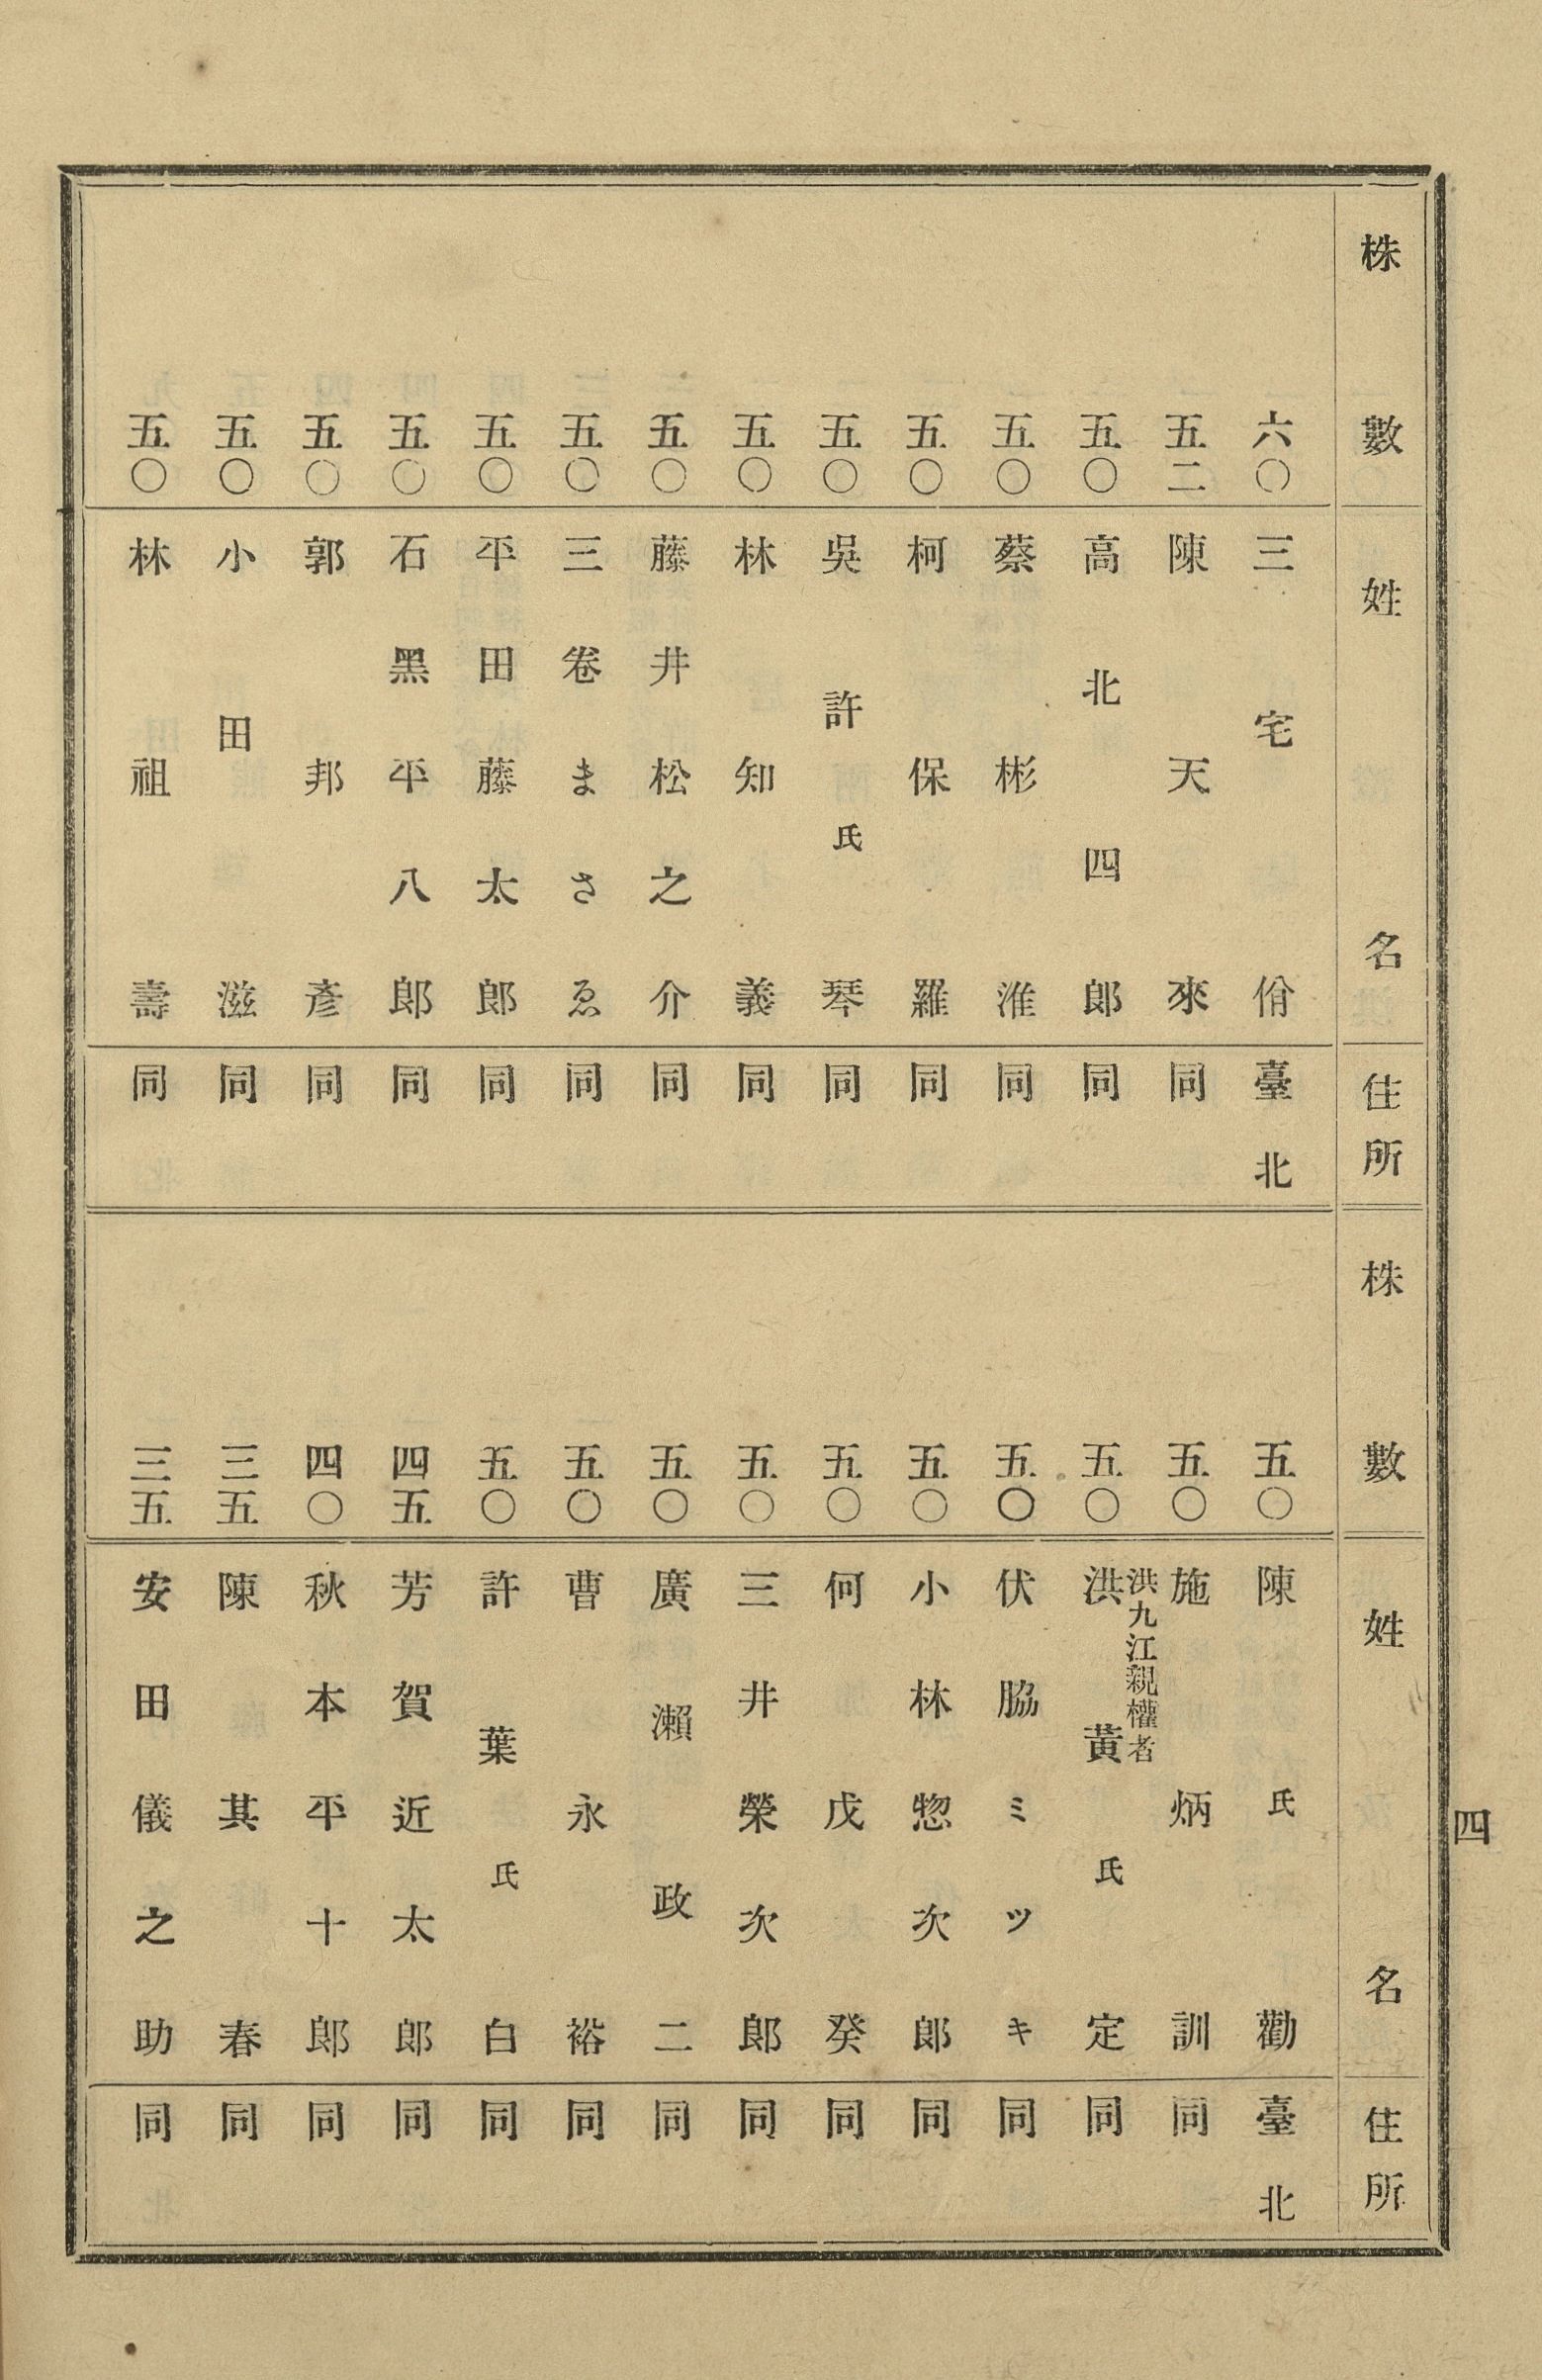 株數 姓名 住所
六〇 三宅佾 臺北
五二 陳天來 同
五〇 高北四郎 同
五〇 蔡彬淮 同
五〇 柯保羅 同
五〇 吳許氏琴 同
五〇 林知義 同
五〇 藤井松之介 同
五〇 三卷まさゑ 同
五〇 平田藤太郎 同
五〇 石黑平八郎 同
五〇 郭邦彥 同
五〇 小田滋 同
五〇 林祖壽 同
株數 姓名 住所
五〇 陳氏勸 臺北
五〇 施炳訓 同
洪九江親權者
五〇 洪黃氏定 同
五〇 伏脇ミツキ 同
五〇 小林惣次郎 同
五〇 何戊癸 同
五〇 三井榮次郎 同
五〇 廣瀨政二 同
五〇 曹永裕 同
五〇 許葉氏白 同
四五 芳賀近太郎 同
四〇 秋本平十郎 同
三五 陳其春 同
三五 安田儀之助 同
四